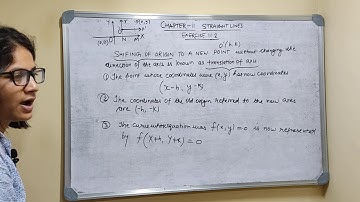 CHAPTER-11 STRAIGHT LINES
EXERCISE 11.2
O'(h, k)
SHIFTING OF ORIGIN TO A NEW POINT without changing the
direction of the axis is known as translation of axis
① The point whose coordinates were (x, y) has now coordinates
(x-h, y-k)
② The coordinates of the old origin referred to the new axes
are (-h, -k)
③ The curve whose equation was f(x, y) = 0 is now represented
by f(X+h, Y+k) = 0